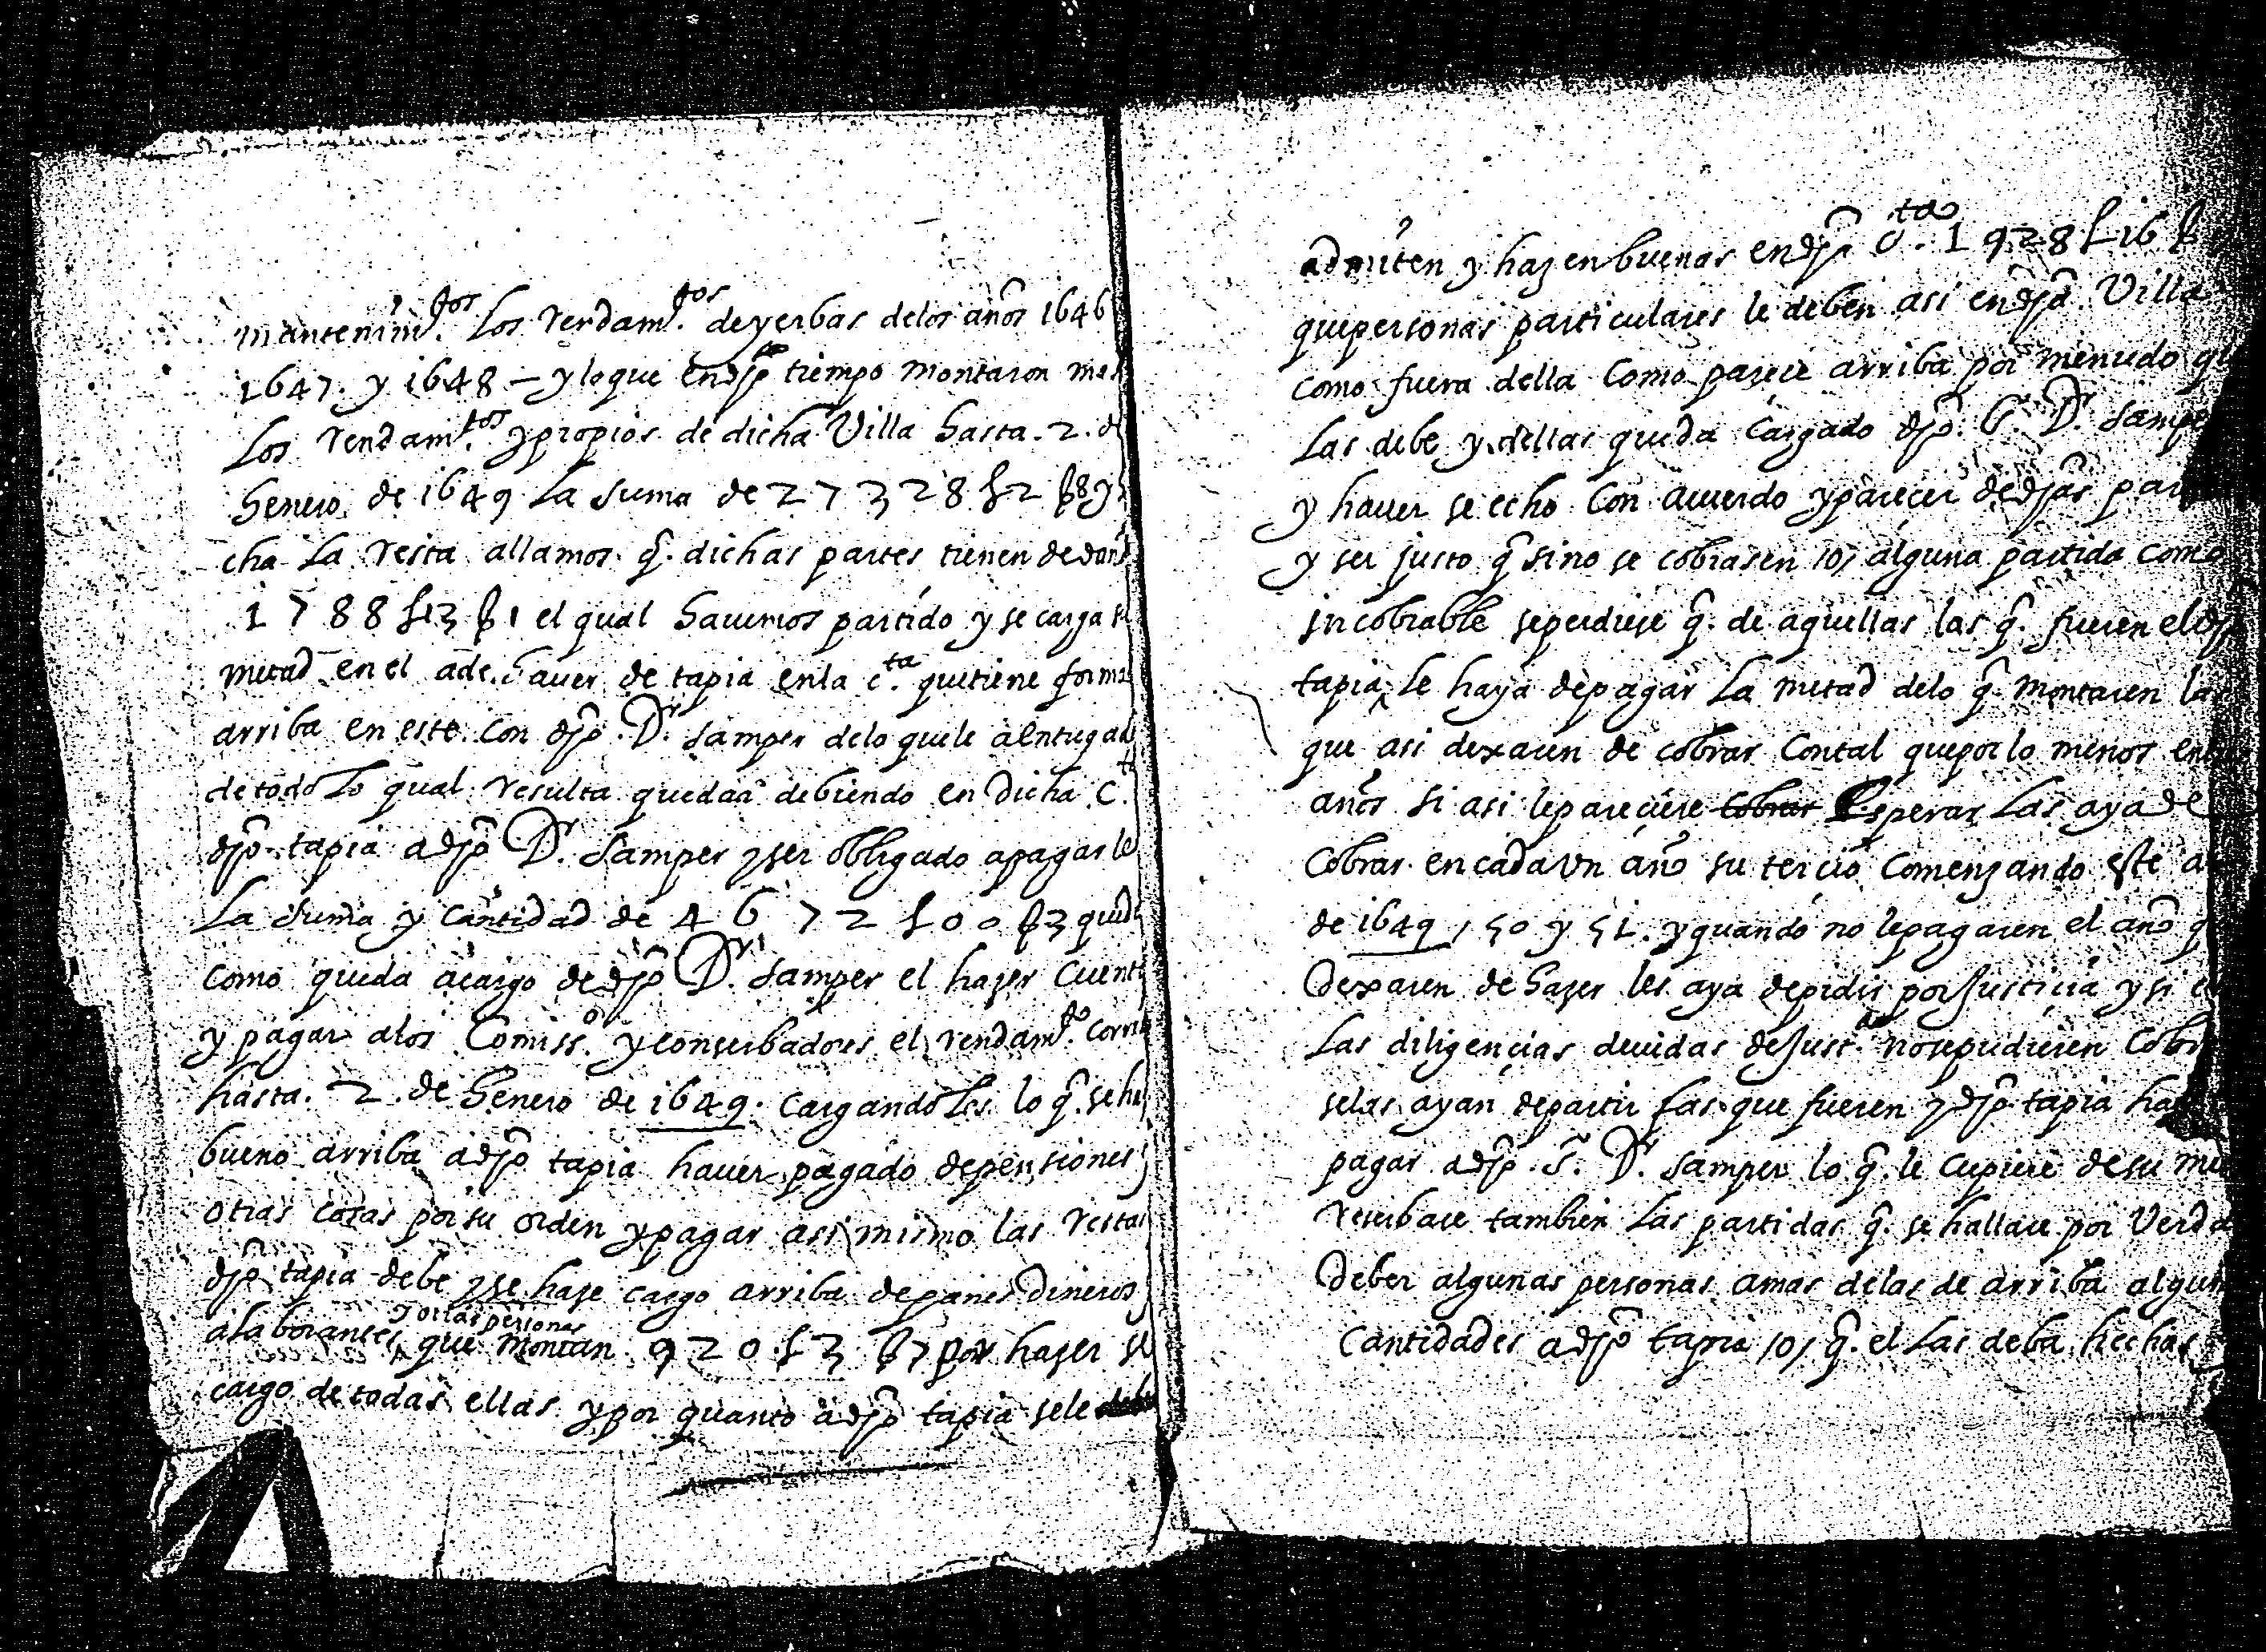 mantenim.tos los rendam.tos de yerbas de los años 1646
1647. y 1648 — y lo que en dho tiempo montaron mas
Los rendam.tos y propios de dicha Villa hasta. 2. de
henero de 1649 la suma de 27328 L 2 ß 8 y
cha la resta allamos. q̃. dichas partes tienen de daño
1788 L 13 ß 1 el qual havemos partido y se carga
metad en el ade. haver de tapia en la c.ta que tiene forma
arriba en este. con dho. Dr. samper de lo que le a entregado
de todo lo qual resulta quedar debiendo en Dicha C.ta
dho. tapia a dho Dr. samper y ser obligado a pagarle
La suma y Cantidad de 4672 L 00 ß 3 que
como queda a cargo de dho Dr. samper el hazer Cuenta
y pagar a los Comiss.o y conserbadores el rendam.to
hasta. 2. de henero de 1649. cargandoles lo q̃. se ha
bueno arriba a dho tapia haver pagado de pensiones
otras cosas por su orden y pagar asi mismo las restas
dho tapia debe y se haze cargo arriba de panes Dineros
a laborantes y otras personas que montan 920 L 3 ß 7 por hazer se
cargo de todas ellas y por quanto a dho tapia se le
admiten y hazen buenas en dha c.ta 1928 L 16 ß
que personas particulares le deben asi en dha Villa
como fuera della Como pareze arriba por menudo
Las debe y dellas queda Cargado dho. Dr. samper
y haver se echo Con acuerdo y parecer de dhas
y ser justo q̃ si no se cobrasen /o/ alguna partida como
incobrable se perdiese q̃. de aquellas las q̃. fueren el dho
tapia le haya de pagar la metad de lo q̃ montaren las
que asi dexaren de cobrar Con tal que por lo menos
años si asi le pareciere cobrar Esperar Las aya de
Cobrar en cada Vn año su tercio Comenzando este
de 1649, 50 y 51. y quando no le pagaren el año
Dexaren de hazer les aya de pidir por Justicia y si
Las diligencias devidas de Just.a no se pudieren
se las ayan de partir las que fueren y dho tapia
pagar a dho. S. Dr. samper lo q̃. le cupiere de su
reserbase tambien Las partidas q̃. se hallare por Verdad
Deber algunas personas a mas de las de arriba
Cantidades a dho tapia /o/ q̃. el Las deba hechas